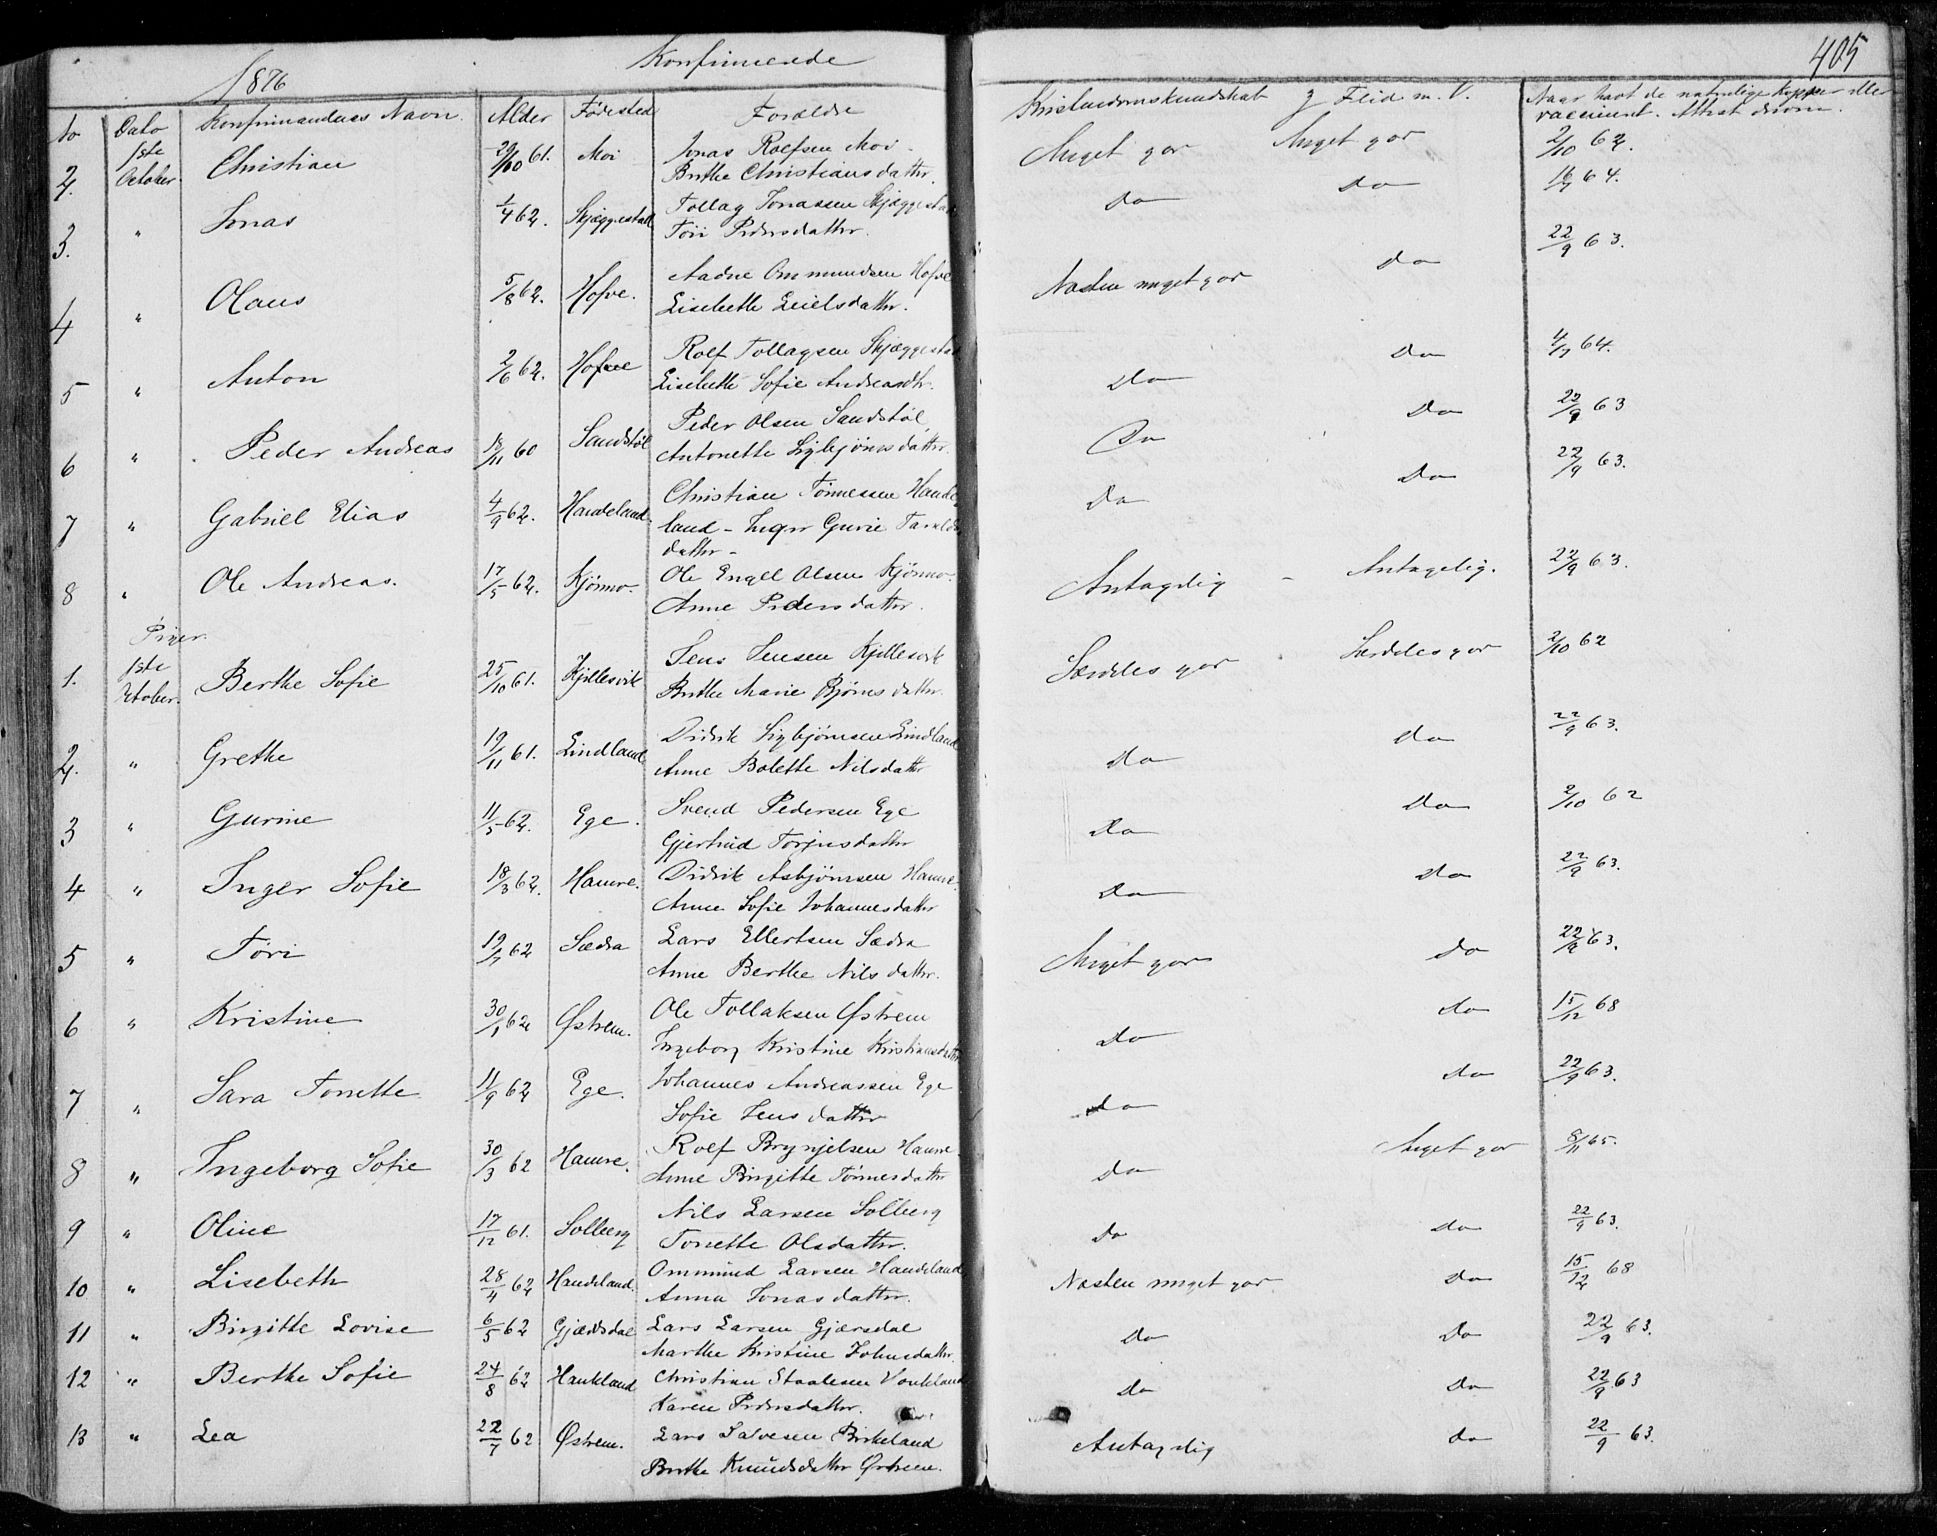 1876 Konfirmerede 405
No Dato Konfirmandens Navn. Alder Fødested Forældre Kristendomskundskab & Flid m. V. Naar havt de naturlige Kopper eller vaccineret. Attest derom.
2. 1ste October. Christian 29/10 61. Moi Jonas Rolfsen Moi - Meget god Meget god 2/10 62.
Berthe Christiansdatter.
3. " Jonas 1/4 62. Skjæggestad Tollag Jonassen Skjæggestad Do Do 64.
Tøri Pedersdatter.
4 " Olaus 5/8 62. Hofve. Aadne Ommundsen Hofve Næsten meget god Do 22/9 63.
Lisebeth Leielsdatter.
5 " Anton 2/6 62. Hofve Rolf Tollagsen Skjæggestad Do Do 4/7 64.
Lisebeth Sofie Andreasdtr.
6 " Peder Andreas 18/11 60 Sandstøl Peder Olsen Sandstøl, Do Do 22/9 63
Antonette Sigbjørnsdatter.
7 " Gabriel Elias 4/9 62. Handeland. Christian Tønnessen Hande Do Do 22/9 63.
land - Inger Gurie Taralds
datter -
8 " Ole Andreas. 17/5 62. Kjønno. Ole Engel Olsen Kjønno. Antagelig - Antagelig. 22/9 63.
Anne Pedersdatter.
Piger.
1. 1ste October. Berthe Sofie 25/10 61. Kjellesvik Jens Jensen Kjellesvik Særdeles god Særdeles god 2/10 62
Berthe Marie Bjørnsdatter.
2. " Grethe 19/11 61. Lindland Didrik Sigbjørnsen Lindland Do Do 22/9 63.
Anne Bolette Nilsdatter
3 " Gurine 11/5 62. Ege. Svend Pedersen Ege Do Do 2/10 62
Gjertrud Torjusdatter
4 " Inger Sofie 18/3 62. Hamre. Didrik Asbjørnsen Hamre. Do Do 22/9 63.
Anne Sofie Johannesdatter
5 " Tøri 19/7 62 Sædra Lars Ellertsen Sædra Meget god Do 22/9 63.
Anne Berthe Nilsdatter.
6 " Kristine 30/1 62 Østrem. Ole Tollaksen Østrem Do Do 15/12 68
Ingeborg Kristine Kristiansdatter
7 " Sara Tonette 11/9 62 Ege. Johannes Andreassen Ege Do Do 22/9 63.
Sofie Jensdatter
8 " Ingeborg Sofie 30/3 62 Hamre. Rolf Brynjelsen Hamre Do Meget god 8/11 65.
Anne Birgitte Tønnesdatter
9 " Oline 17/12 61. Solberg Nils Larsen Solberg Do Do 22/9 63.
Tonette Olsdatter.
10 " Lisebeth 28/4 62 Handeland. Ommund Larsen Handeland Næsten meget god. Do 15/12 68
Anna Jonasdatter.
11 " Birgitte Lovise 6/5 62 Gjærsdal Lars Larsen Gjærsdal Do Do 22/9 63.
Marthe Kristine Johnsdatter.
12 " Berthe Sofie 24/8 62 Haukland Christian Staalesen Haukland Do Do 22/9 63
Karen Pedersdatter.
13 " Lea 22/7 62 Østrem. Lars Salvesen Birkeland Antagelig Do 22/9 63.
Berthe Knudsdatter Østrem.